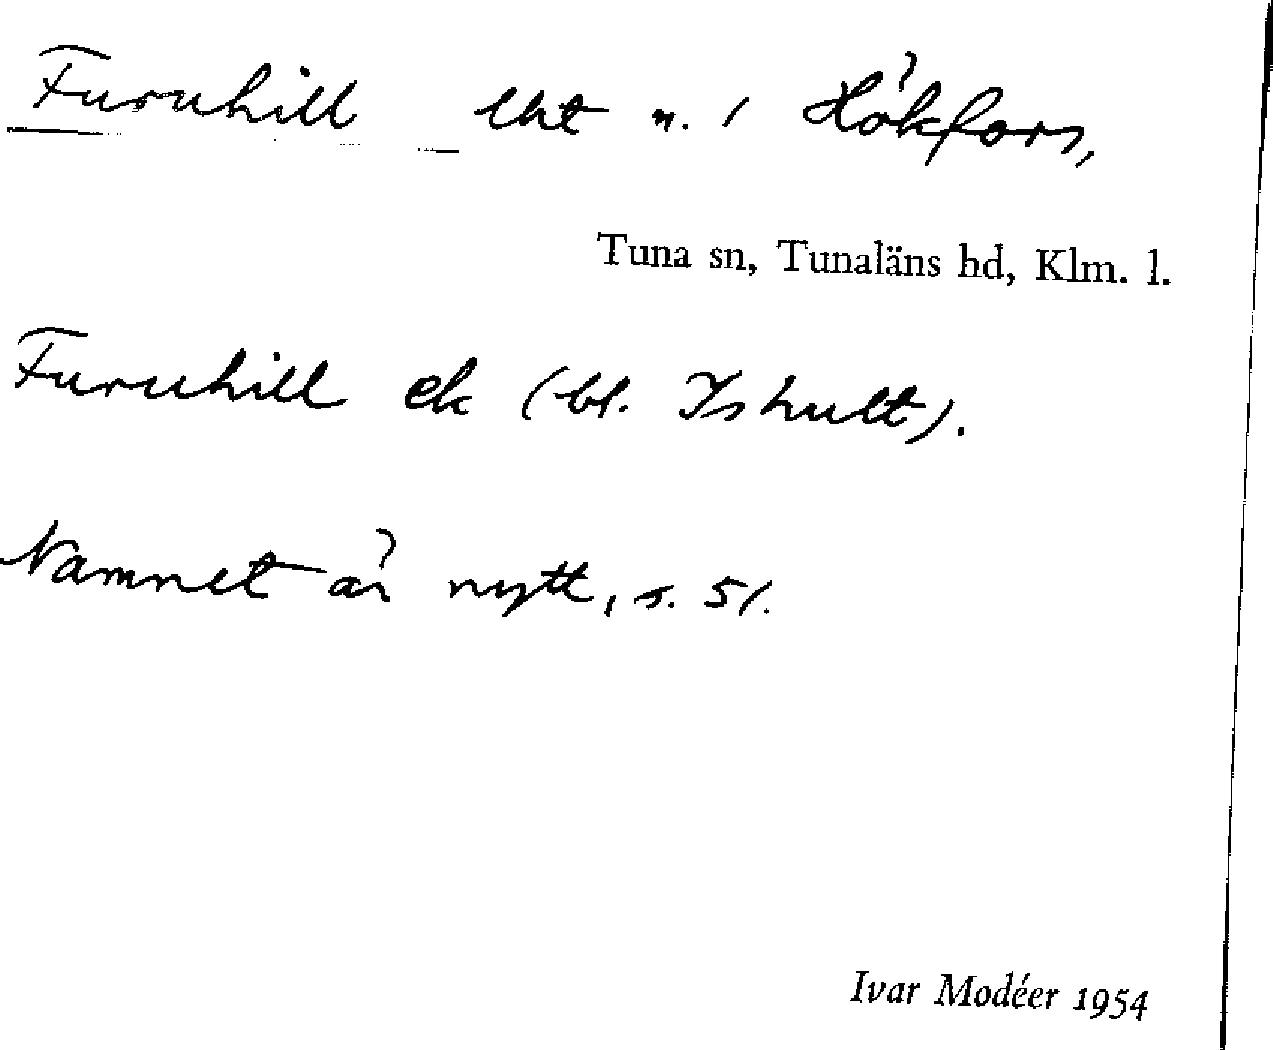 Furuhill lht n. 1 Hökfors,
Tuna sn, Tunaläns hd, Klm. l.
Furuhill ek (bl. Ishult).
Namnet är nytt, s. 51.
Ivar Modéer 1954